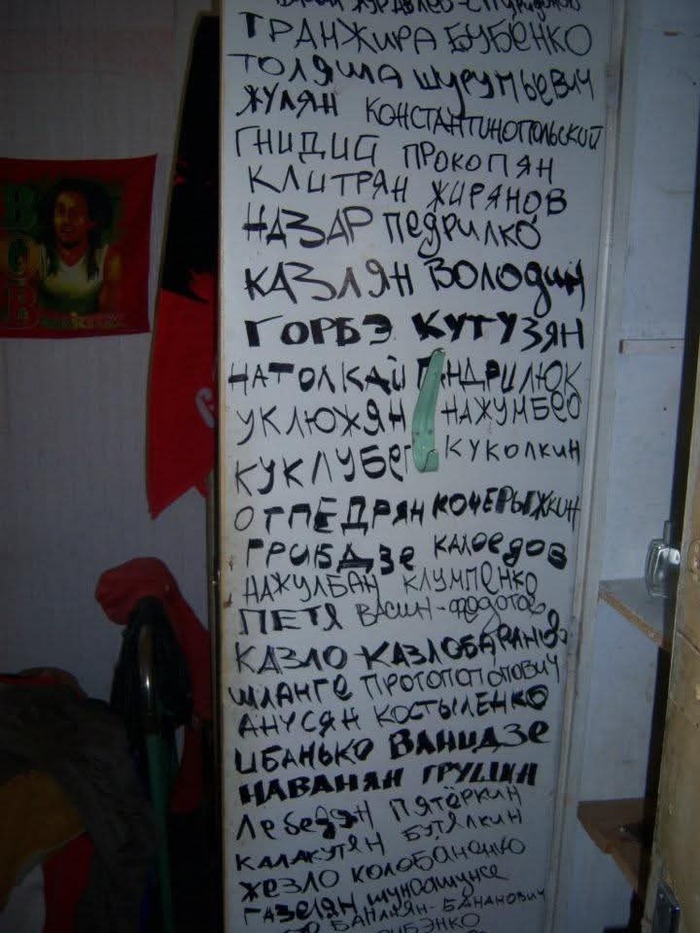 BOB
ТРАНЖИРА БУБЕНКО
ТОЛЯША ШУРУМЬЕВИЧ
ЖУЛЯН КОНСТАНТИНОПОЛЬСКИЙ
ГНИДИЙ ПРОКОПЯН
КЛИТРЯН ЖИРЯНОВ
НАЗАР ПЕДРИЛКО
КАЗЛЯН ВОЛОДИН
ГОРБЭ КУТУЗЯН
НАТОЛКАЙ ПАНДРИЛЮК
УКЛЮЖЯН НАЖУМБЕО
КУКЛУБЕГ КУКОЛКИН
ОТПЕДРЯН КОЧЕРЫЖКИН
ГРИБДЗЕ КАЛОЕДОВ
НАЖУЛБАН КЛУМПЕНКО
ПЕТЯ ВАСИН-ФЕДОТОВ
КАЗЛО КАЗЛОБАРАНОВ
ШЛАНГЕ ПРОТОПОПОПОВИЧ
АНУСЯН КОСТЫЛЕНКО
ИБАНЬКО ВАНИДЗЕ
НАВАНЯН ГРУШИН
ЛЕБЕДЯН ПЯТЁРКИН
КАЛАКУТЯН БУТЯЛКИН
ЖЕЗЛО КОЛОБАНЕНКО
ГАЗЕЛЯН ШУНСАШУНСЕ
БАНЛАЯН-БАНАНОВИЧ